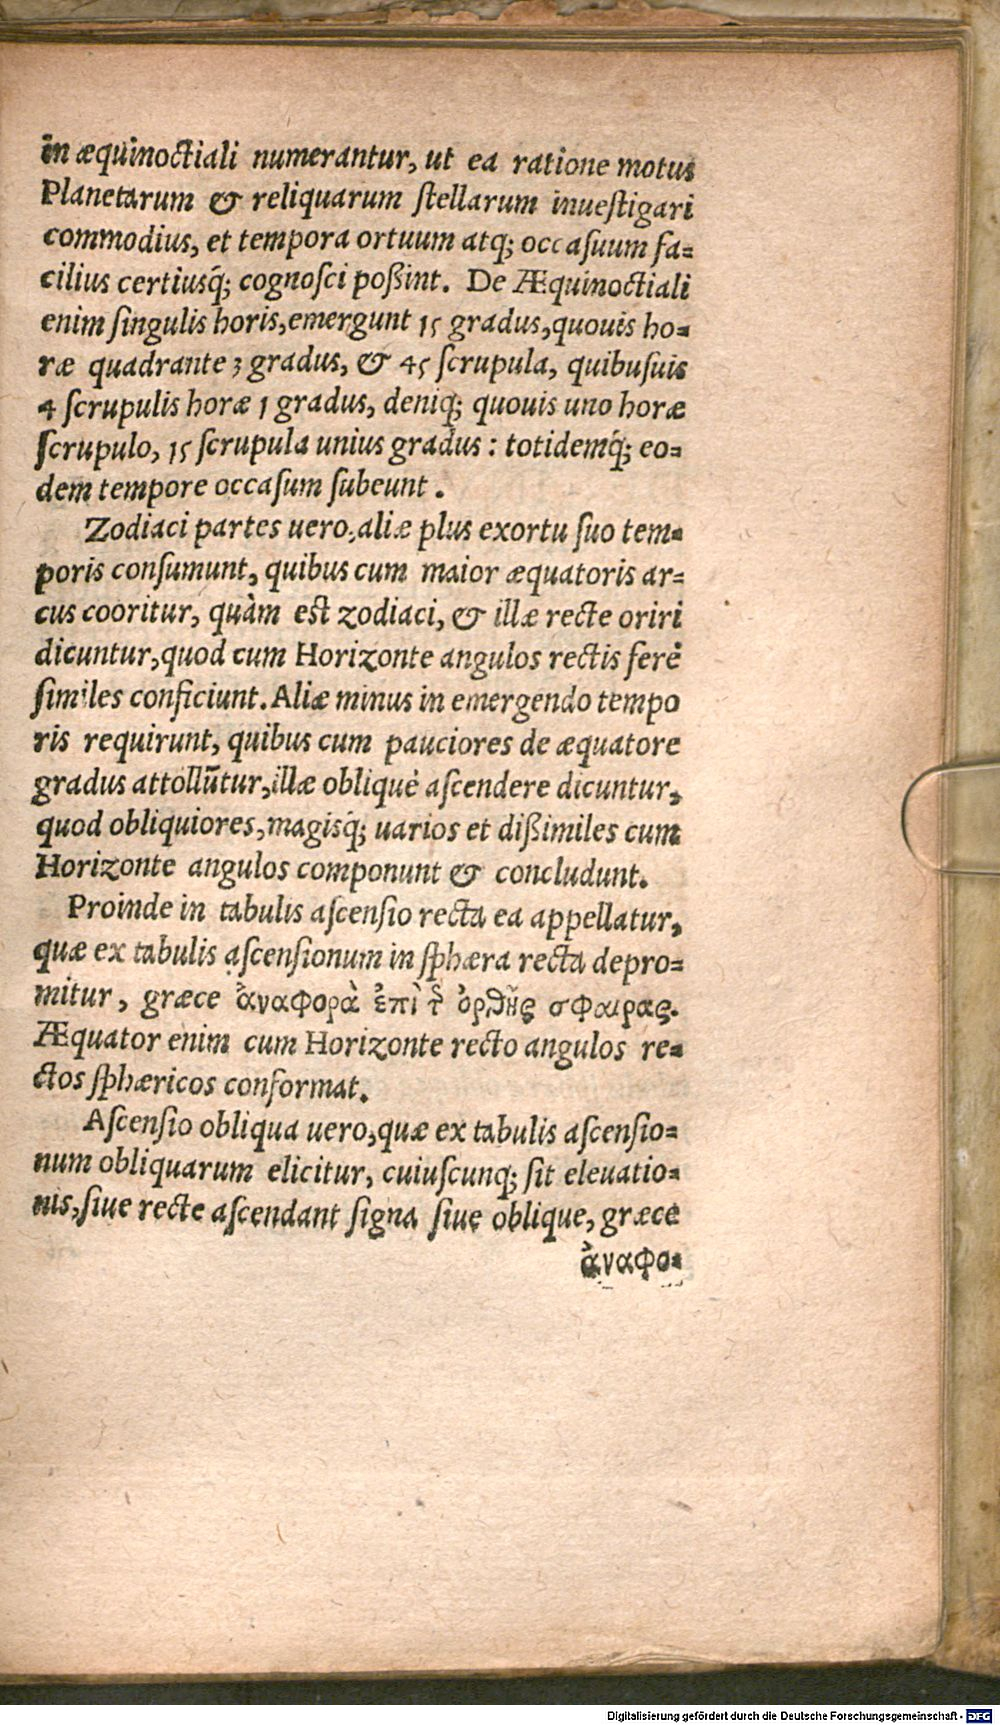 in æquinoctiali numerantur, ut ea ratione motus
Planetarum & reliquarum ſtellarum inueſtigari
commodius, et tempora ortuum atq; occaſuum fa=
cilius certiusq́; cognoſci poßint. De Æquinoctiali
enim ſingulis horis, emergunt 15 gradus, quouis ho=
ræ quadrante 3 gradus, & 45 ſcrupula, quibuſuis
4 ſcrupulis horæ 1 gradus, deniq; quouis uno horæ
ſcrupulo, 15 ſcrupula unius gradus: totidemq́; eo=
dem tempore occaſum ſubeunt.
Zodiaci partes uero, aliæ plus exortu ſuo tem=
poris conſumunt, quibus cum maior æquatoris ar=
cus cooritur, quàm est zodiaci, & illæ recte oriri
dicuntur, quod cum Horizonte angulos rectis ferè
ſimiles conficiunt. Aliæ minus in emergendo tempo
ris requirunt, quibus cum pauciores de æquatore
gradus attollũtur, illæ obliquè aſcendere dicuntur,
quod obliquiores, magisq́; uarios et dißimiles cum
Horizonte angulos componunt & concludunt.
Proinde in tabulis aſcenſio recta ea appellatur,
quæ ex tabulis aſcenſionum in ſphæra recta depro=
mitur, græce ἀναφορὰ ἐπὶ τ͂ ὀρθῆς σφαιρας.
Æquator enim cum Horizonte recto angulos re=
ctos ſphæricos conformat.
Aſcenſio obliqua uero, quæ ex tabulis aſcenſio=
num obliquarum elicitur, cuiuſcunq; ſit eleuatio=
nis, ſiue recte aſcendant ſigna ſiue oblique, græce
ἀναφο=
Digitalisierung gefördert durch die Deutsche Forschungsgemeinschaft - DFG